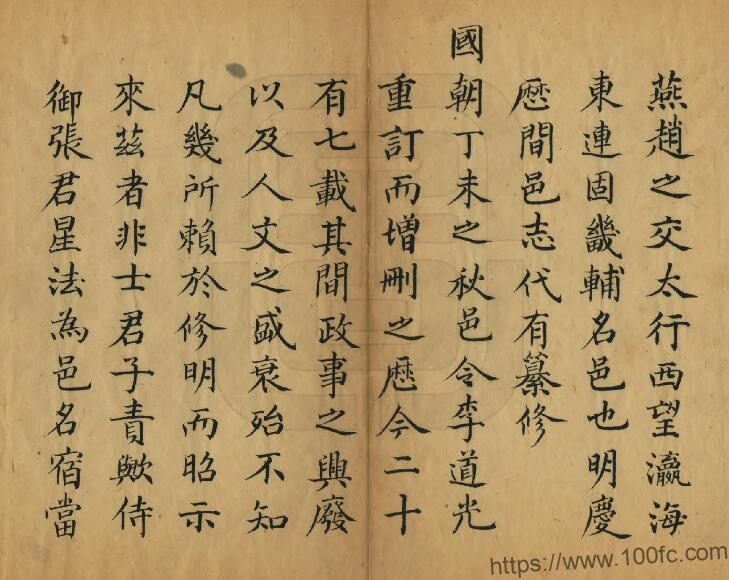 燕趙之交太行西望瀛海
東連固畿輔名邑也明慶
厯間邑志代有纂修
國朝丁未之秋邑令李道光
重訂而增刪之厯今二十
有七載其間政事之興廢
以及人文之盛衰殆不知
凡幾所賴於修明而昭示
來茲者非士君子責歟侍
御張君星法為邑名宿當
https://www.100fc.com